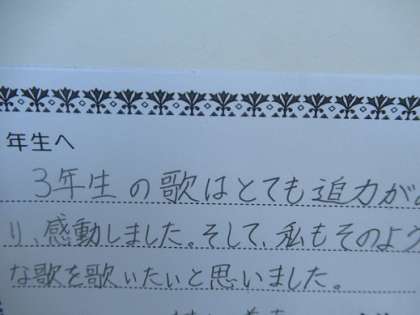 年生へ
3年生の歌はとても迫力があ
り、感動しました。そして、私もそのよう
な歌を歌いたいと思いました。